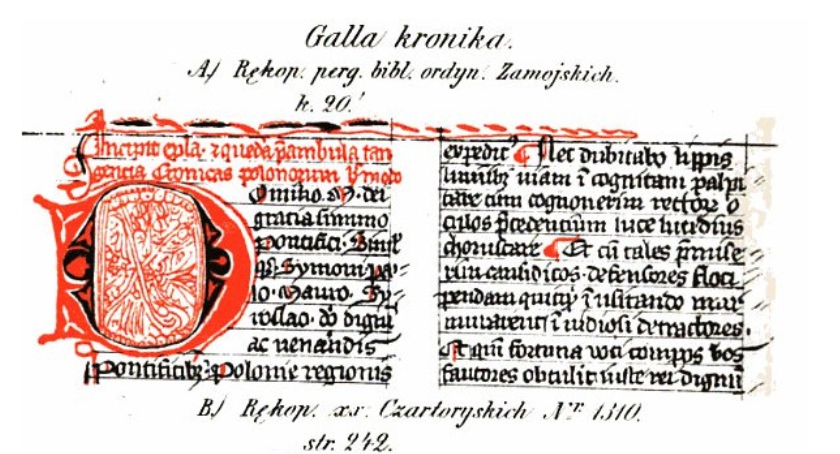 Galla kronika.
A) Rękop. perg. bibl. ordyn. Zamojskich.
k. 20.'
Incipit epla. ⁊ queda p̄ambula tan
gencia Cronicas polonorum
Domino .M. dei
gracia summo
pontifici.
Symoni
lo. Mauro.
roslao. dō dignis
ac venerandis
Pontificibz Polonie regionis
expedit. Nec dubitabo
uiam ī cognitam palpi
tare cum cognouerim rectorū o
culos p̄cedencium luce lucidius
choruscare Et cū tales p̄mise
rim causidicos. defensores floci
pendam quitqͥ ī usitando mur
murauerit ī uidiosi detractores.
Et qm̄ fortuna uoti compos uos
fautores obtulit iuste rei dignū
B) Rękop. xx. Czartoryskich Nr. 1310.
str. 242.